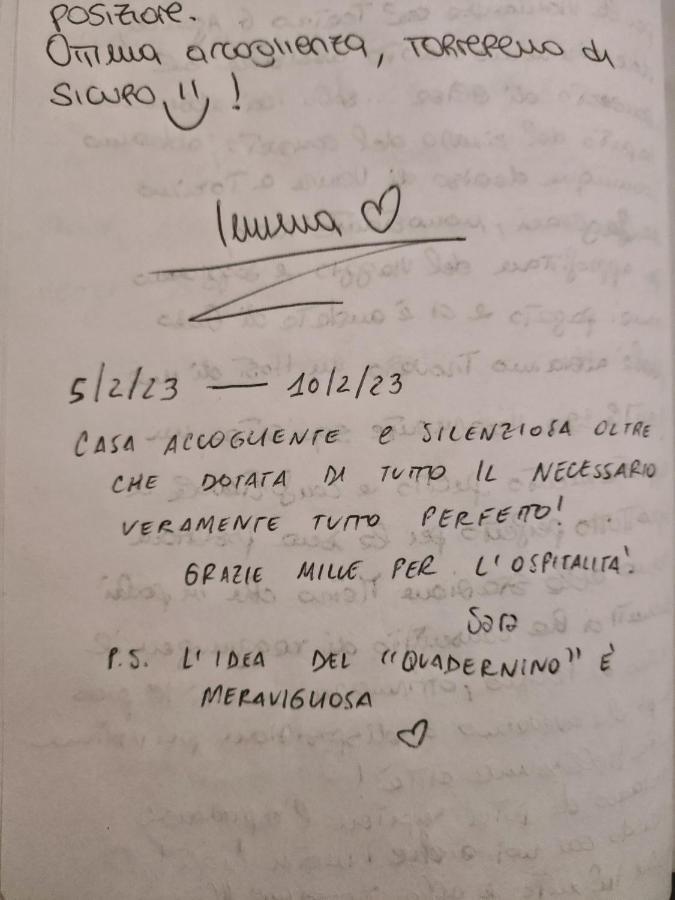 POSIZIONE.
OTTIMA accoglienza, TORNEREMO di
SICURO !
5/2/23 — 10/2/23
CASA ACCOGLIENTE e SILENZIOSA OLTRE
CHE DOTATA DI TUTTO IL NECESSARIO
VERAMENTE TUTTO PERFETTO!
GRAZIE MILLE PER L'OSPITALITA'.
Sara
P.S. L'IDEA DEL "QUADERNINO" È
MERAVIGLIOSA